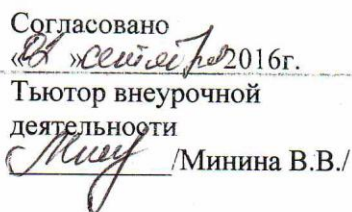 Согласовано
«01» сентября 2016г.
Тьютор внеурочной
деятельности
/Минина В.В./